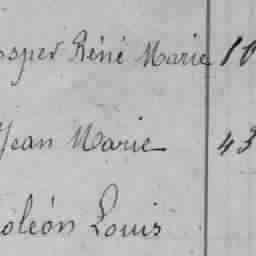 osper Réné Marie 10
Jean Marie 43
oléon Louis